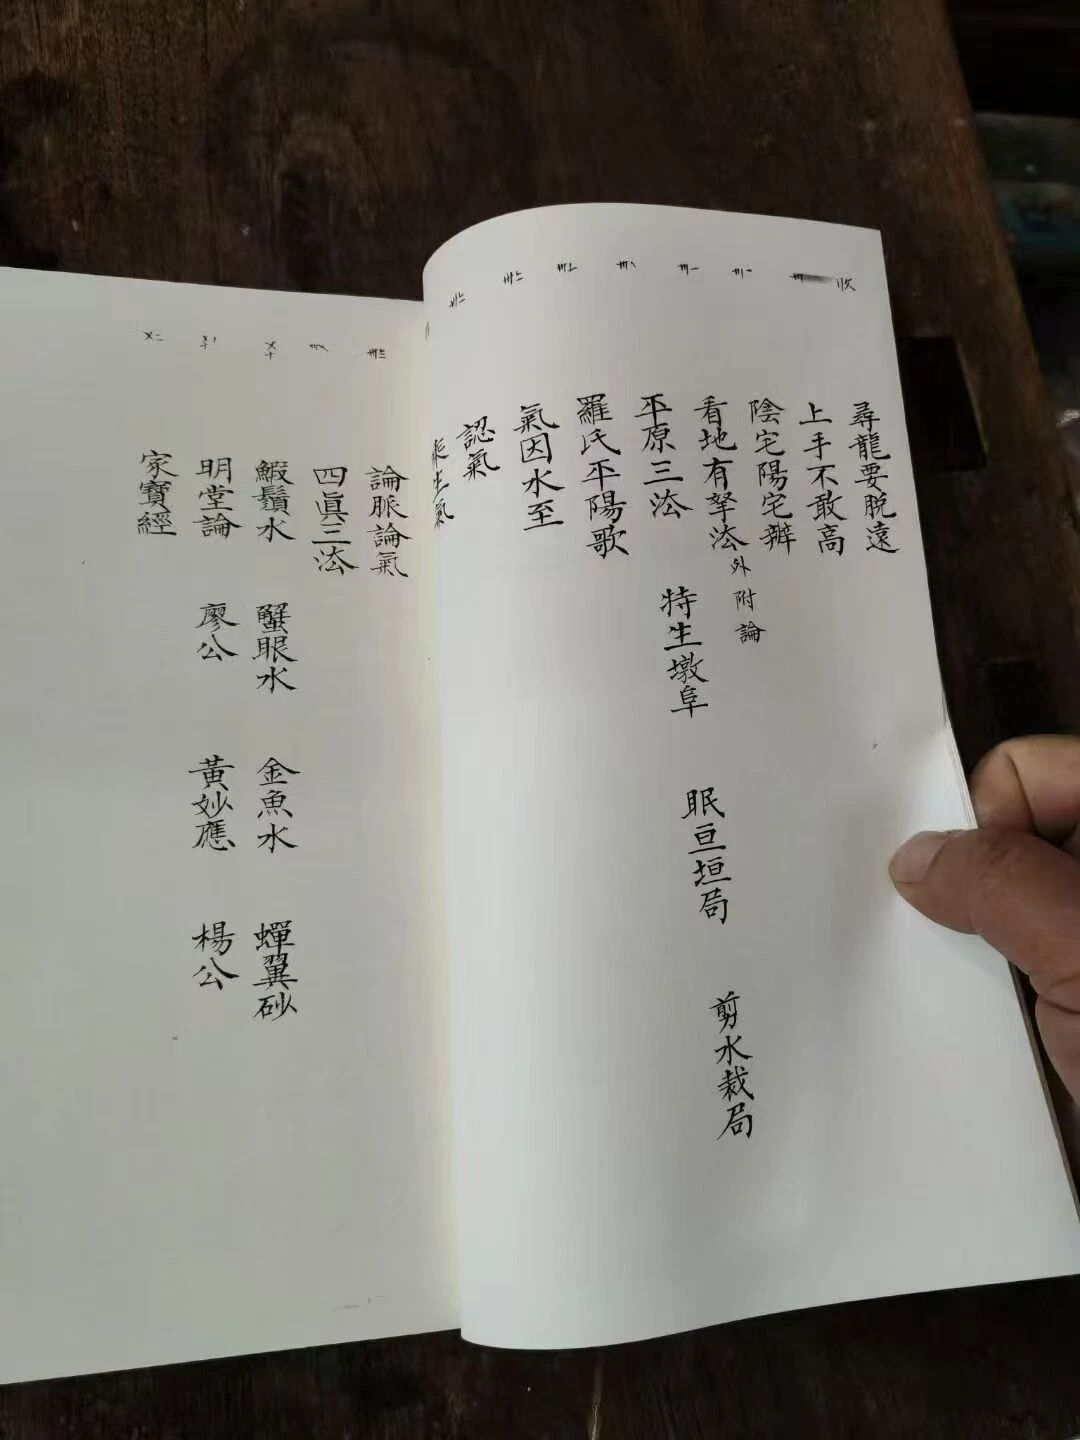 尋龍要脱遠
上手不敢高
陰宅陽宅辨
看地有拏法 外附論
平原三法 特生墩阜 眠亘垣局 剪水裁局
羅氏平陽歌
氣因水至
認氣
乘生氣
論脈論氣
四眞三法
鰕鬚水 蟹眼水 金魚水 蟬翼砂
明堂論 廖公 黃妙應 楊公
家寶經